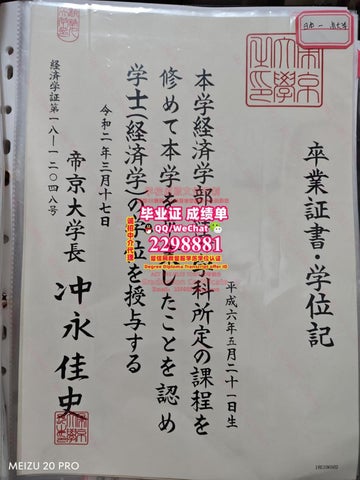 卒業証書・学位記
平成六年五月二十一日生
本学経済学部学科所定の課程を
修めて本学をしたことを認め
学士(経済学)の学位を授与する
令和二年三月十七日
帝京大学長 冲永佳史
経済学証第一八―一二〇四八号
毕业证 成绩单
QQ/WeChat
2298881
诚招中介代理
留服学历学位认证
Degree Diploma Transcript offer ID
MEIZU 20 PRO